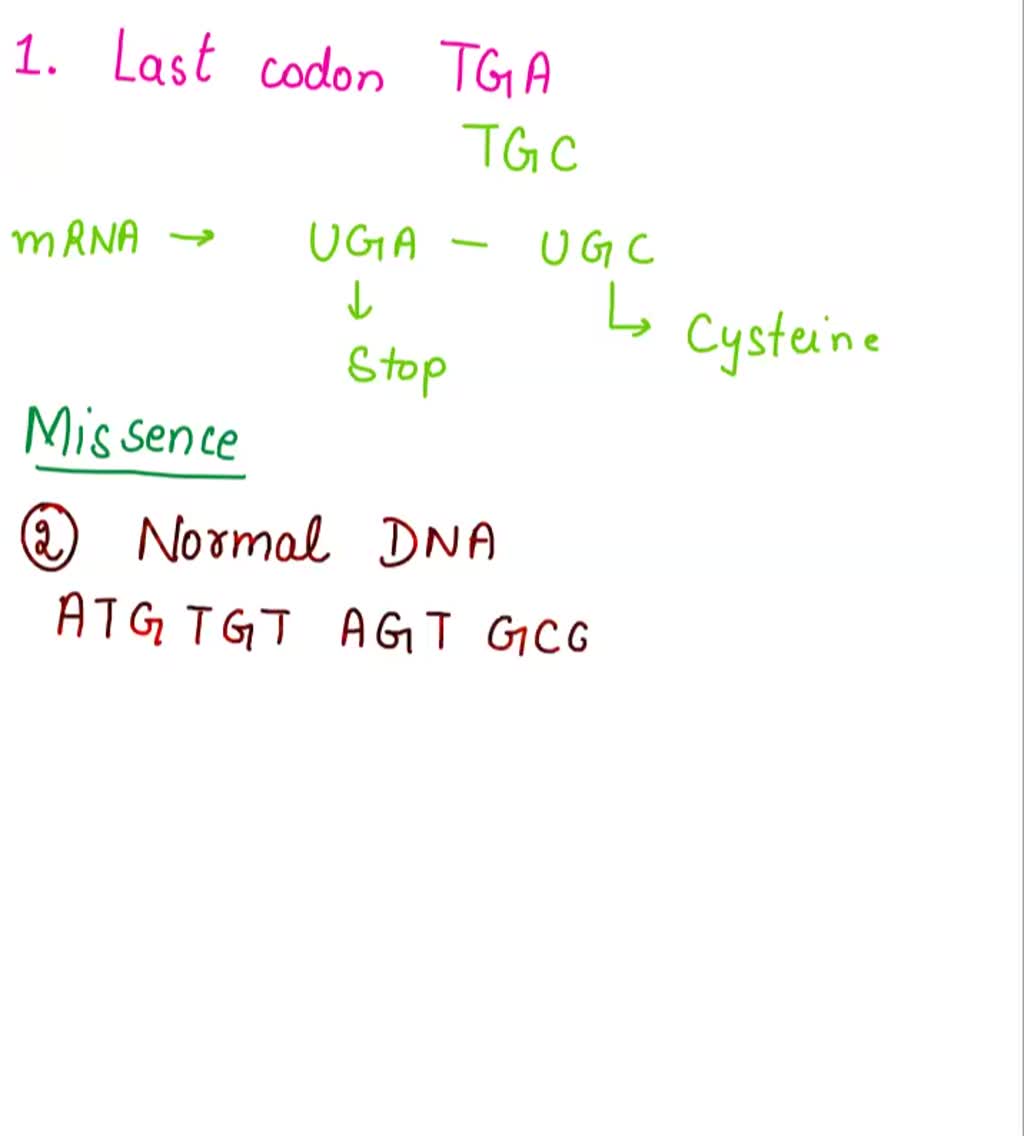 1. Last codon TGA
TGC
mRNA → UGA - UGC
↓ ↳ Cysteine
Stop
Missence
② Normal DNA
ATG TGT AGT GCG